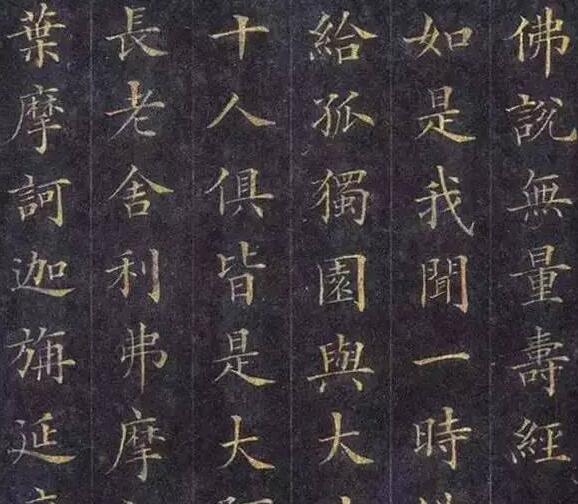 佛說無量壽經
如是我聞一時
給孤獨園與大
十人俱皆是大
長老舍利弗摩
葉摩訶迦旃延